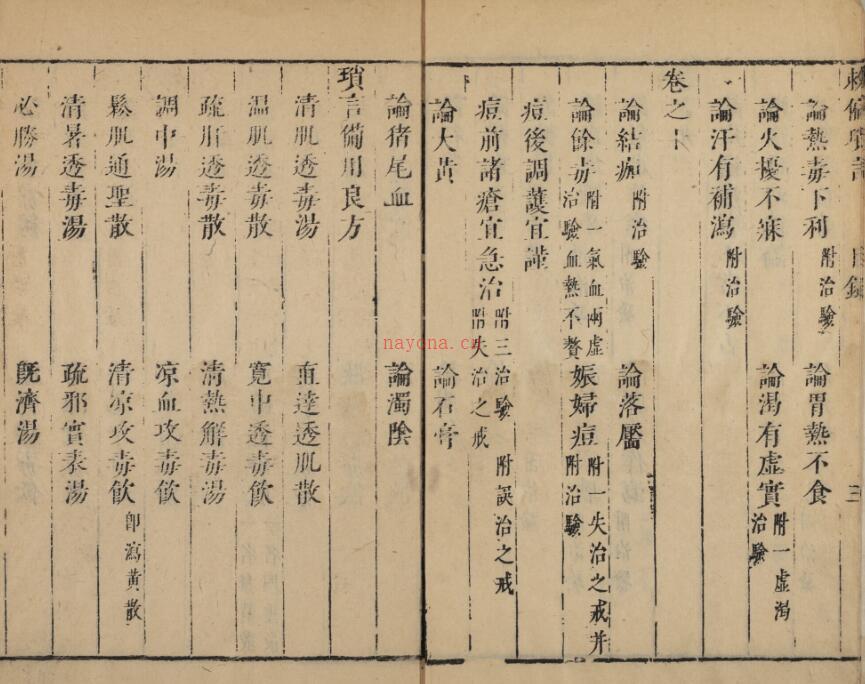 目錄 三
論熱毒下利 附治驗 論胃熱不食
論火擾不寐 論渴有虛實 附一虛渴治驗
論汗有補瀉 附治驗
卷之十
論結痂 附治驗 論落靨
論餘毒 附一氣血兩虛治驗血熱不贅 娠婦痘 附一失治之戒并附治驗
痘後調護宜謹
痘前諸瘡宜急治 附三治驗 附誤治之戒 附失治之戒
論大黃 論石膏
論猪尾血 論濁陰
瑣言備用良方
清肌透毒湯 直達透肌散
温肌透毒散 寬中透毒飲
疏肝透毒散 清熱解毒湯
調中湯 凉血攻毒飲
鬆肌通聖散 清凉攻毒飲 卽瀉黃散
清暑透毒湯 疏邪實表湯
必勝湯 旣濟湯
nayona.cn